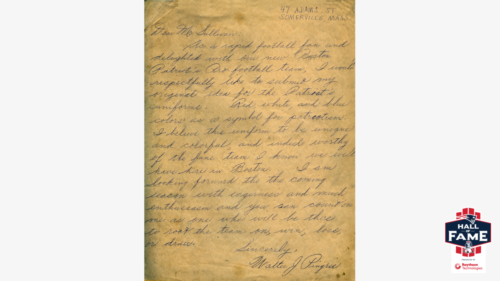 97 ADAMS ST
SOMERVILLE, MASS.
Dear Mr. Sullivan:
As a rapid football fan and
delighted with his new Boston
Patriots Pro football team, I would
respectfully like to submit my
original idea for the Patriot's
uniforms. Red, white, and blue
colors as a symbol for patriotism.
I believe this uniform to be unique
and colorful and indeed worthy
of the fine team I know we will
have here in Boston. I am
looking forward the the coming
season with eagerness and much
enthusiasm and you can count on
me as one who will be there
to root the team on, win, lose,
or draw.
Sincerely,
Walter J. Pingree
HALL
OF
FAME
PRESENTED BY
Raytheon
Technologies